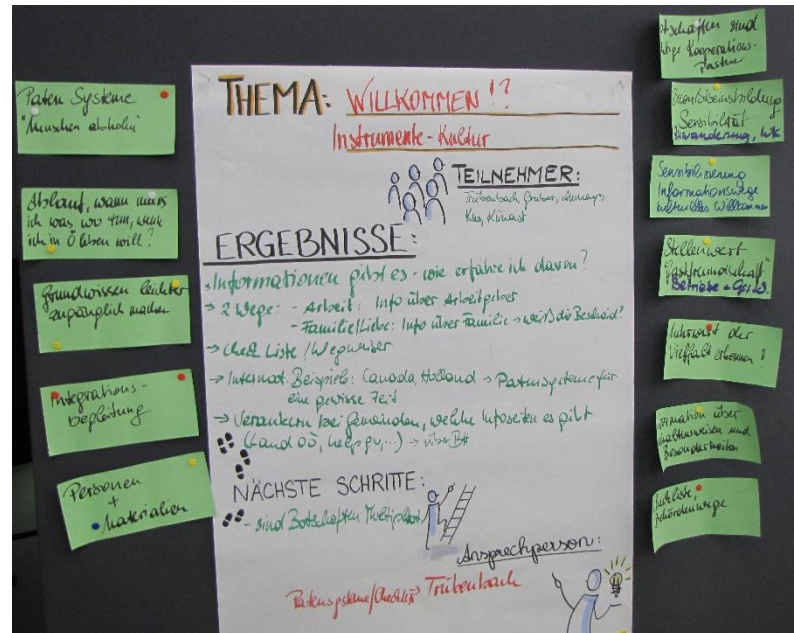 Paten Systeme
"Menschen abholen"
Ablauf, wann muss
ich was, wo tun, wenn
ich in Ö leben will?
Grundwissen leichter
zugänglich machen
Integrations-
begleitung
Personen
+
Materialien
THEMA: WILLKOMMEN!?
Instrumente - Kultur
TEILNEHMER:
Trübenbach, Gruber,
Kus, Künast
ERGEBNISSE:
Informationen gibt es - wie erfahre ich davon?
→ 2 Wege: - Arbeit: Info über Arbeitgeber
- Familie/Liebe: Info über Familie → weiß die Bescheid?
→ Check Liste / Wegweiser
→ Internat. Beispiele: Canada, Holland → Patensysteme für
eine gewisse Zeit
→ Verankern bei Gemeinden, welche Infoseiten es gibt
(Land OÖ, help.gv,...) → über
NÄCHSTE SCHRITTE:
- sind Botschaften
Ansprechperson:
Patensysteme/Checkliste Trübenbach
otschaften sind
htige Kooperations-
Partner
Bewußtseinsbildung
Sensibilität
Zuwanderung,
Sensibilisierung
Informationswege
kulturelles Willkommen
Stellenwert
"Gastfreundschaft"
Betriebe +
Mehrwert der
Vielfalt erkennen!
ormation über
und
Besonderheiten
Checkliste,
Behördenwege